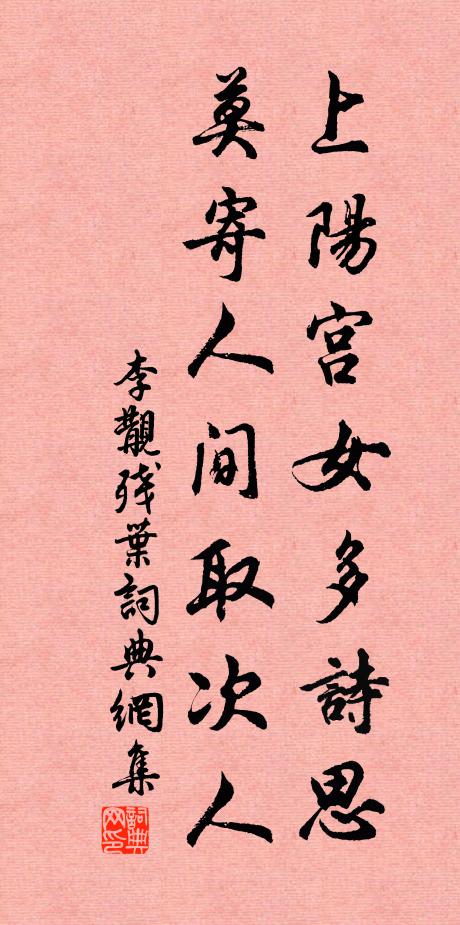 上陽宮女多詩思
莫寄人間取次人
李觀殘葉詞典網集
詞典网印